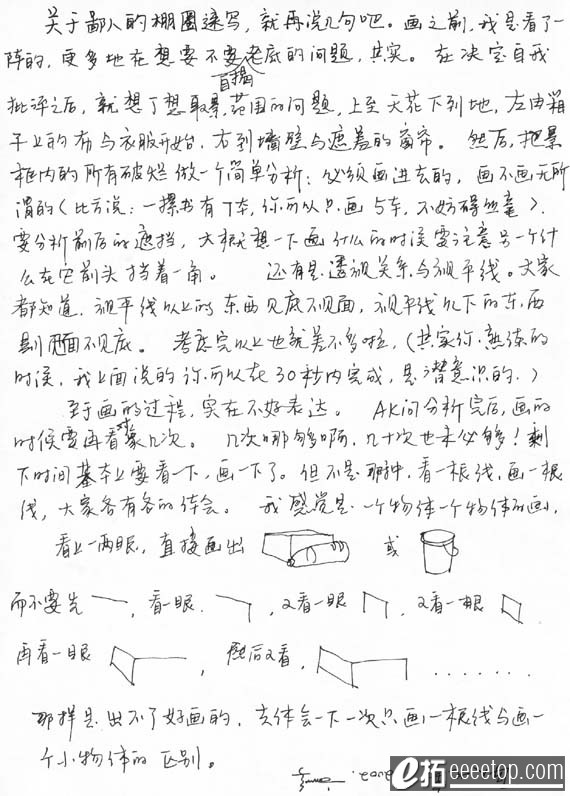 关于鄙人的棚圈速写，就再说几句吧。画之前，我是看了一
阵的，更多地在想要不要自揭老底的问题，其实。在决定自我
批评之后，就想了想取景范围的问题，上至天花下到地，左由箱
子上的布与衣服开始，右到墙壁与遮羞的窗帘。然后，把景
框内的所有破烂做一个简单分析：必须画进去的，画不画无所
谓的（比方说：一摞书有7本，你可以只画5本，不妨碍丝毫）。
要分析前后的遮挡，大概想一下画什么的时候要注意另一个什
么在它前头挡着一角。还有是透视关系与视平线。大家
都知道，视平线以上的东西见底不见面，视平线以下的东西
则见面不见底。考虑完以上也就差不多啦，（其实你熟练的
时候，我上面说的你可以在30秒内完成，是潜意识的。）
到于画的过程，实在不好表达。分析完后，画的
时候要再看对象几次。几次哪够啊，几十次也未必够！剩
下时间基本上要看一下，画一下了。但不是那种，看一根线，画一根
线，大家各有各的体会。我感觉是一个物体一个物体的画，
看上一两眼，直接画出 或
而不要先 ，看一眼 ，又看一眼 ，又看一眼
再看一眼 ，然后又看，.......
那样是出不了好画的，去体会一下一次只画一根线与画一
个小物体的区别。
e拓 eeeetop.com